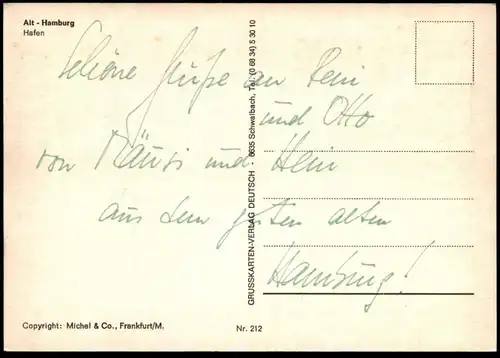 Alt - Hamburg
Hafen
Schöne Grüße an Rein
und Otto
von Mäusi und Hein
aus dem guten alten
Hamburg!
GRUSSKARTEN-VERLAG DEUTSCH · 6635 Schwalbach, Tel. (0 68 34) 5 30 10
Copyright: Michel & Co., Frankfurt/M.
Nr. 212